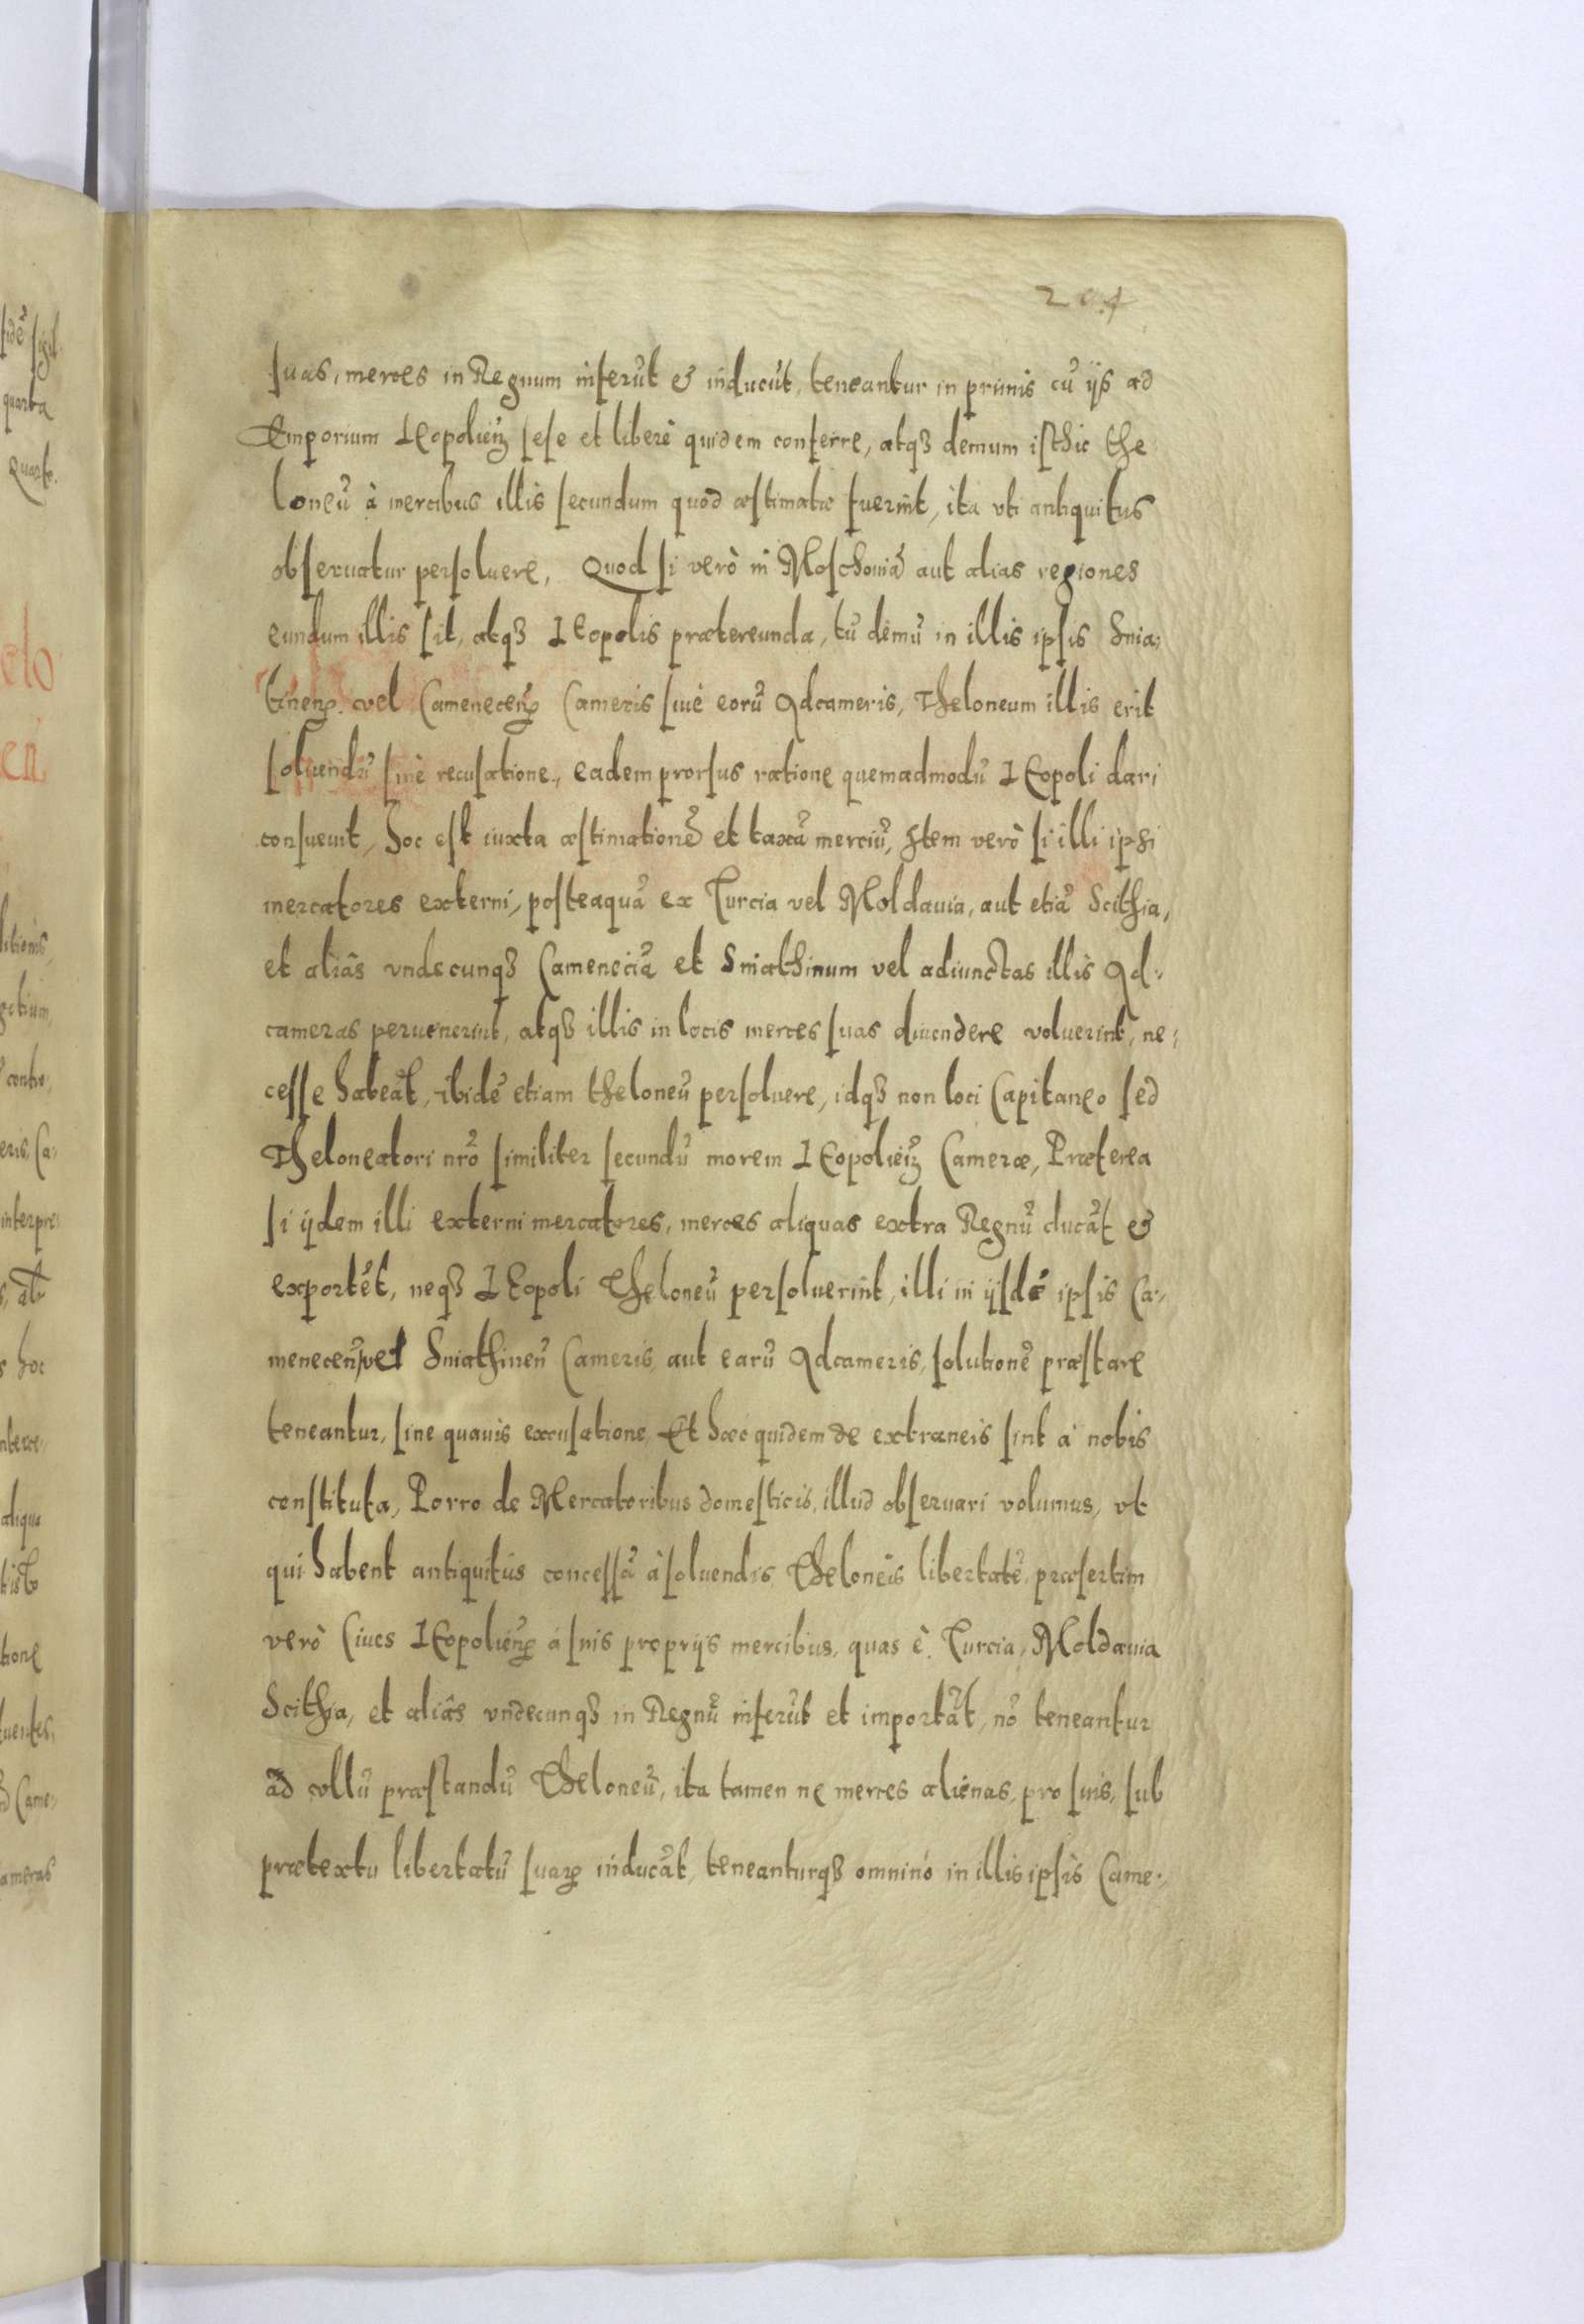 204
suas, merces in Regnum inferūt & inducūt, teneantur in primis cū ijs ad
Emporium Leopolieñ sese et liberè quidem conferre, atqꝫ demum isthic the
loneū à mercibus illis secundum quod æstimatæ fuerint, ita vti antiquitus
obseruatur persoluere, Quod si verò in Moschouiā aut alias regiones
eundum illis sit, atqꝫ Leopolis prætereunda, tū demū in illis ipsis Snia-
tineñ. vel Cameneceñ Cameris siue eorū Adcameris, Theloneum illis erit
soluendū sinè recusatione, eadem prorsus ratione quemadmodū Leopoli dari
consueuit, hoc est iuxta æstimationē et taxā merciū, Item verò si illi ipsi
mercatores externi, posteaquā ex Turcia vel Moldauia, aut etiā Scithia,
et aliâs vndecunqꝫ Cameneciā et Sniathinum vel adiunctas illis Ad-
cameras peruenerint, atqꝫ illis in locis merces suas diuendere voluerint, ne-
cesse habeāt, ibidē etiam theloneū persoluere, idqꝫ non loci Capitaneo sed
Theloneatori nrō similiter secundū morem Leopolieñ Cameræ, Præterea
si ijdem illi externi mercatores, merces aliquas extra Regnū ducāt &
exportēt, neqꝫ Leopoli Theloneū persoluerint, illi in ijsdē ipsis Ca-
meneceñ vel Sniathineñ Cameris, aut earū Adcameris, solutionē præstare
teneantur, sine quauis excusatione, Et hæc quidem de extraneis sint à nobis
constituta, Porro de Mercatoribus domesticis, illud obseruari volumus, vt
qui habent antiquitùs concessā à soluendis Theloneis libertatē, præsertim
verò Ciues Leopolieñ à suis proprijs mercibus, quas è Turcia, Moldauia
Scithia, et aliâs vndecunqꝫ in Regnū inferūt et importāt, nō teneantur
ad vllū præstandū Theloneū, ita tamen ne merces alienas, pro suis, sub
prætextu libertatū suarꝝ inducāt, teneanturqꝫ omninò in illis ipsis Came-